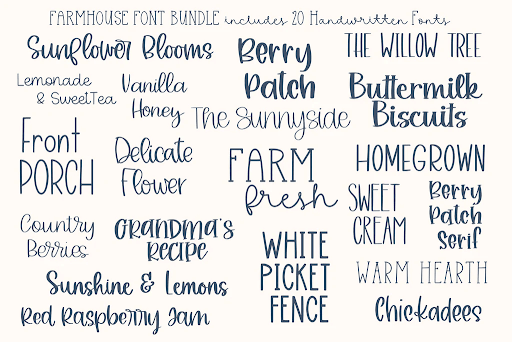 FARMHOUSE FONT BUNDLE includes 20 Handwritten Fonts
Sunflower Blooms
Berry
Patch
THE WILLOW TREE
Lemonade
& SweetTea
Vanilla
Honey
Buttermilk
Biscuits
The Sunnyside
Front
PORCH
Delicate
Flower
FARM
fresh
HOMEGROWN
SWEET
CREAM
Berry
Patch
Serif
Country
Berries
GRANDMA'S
RECIPE
WHITE
PICKET
FENCE
WARM HEARTH
Sunshine & Lemons
Red Raspberry Jam
Chickadees